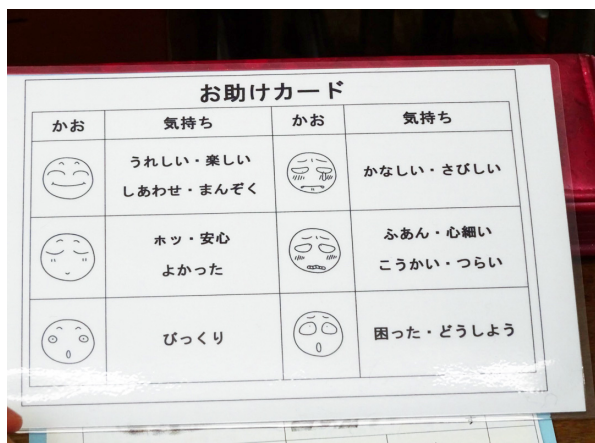 お助けカード
かお 気持ち かお 気持ち
うれしい・楽しい
しあわせ・まんぞく
かなしい・さびしい
ホッ・安心
よかった
ふあん・心細い
こうかい・つらい
びっくり
困った・どうしよう